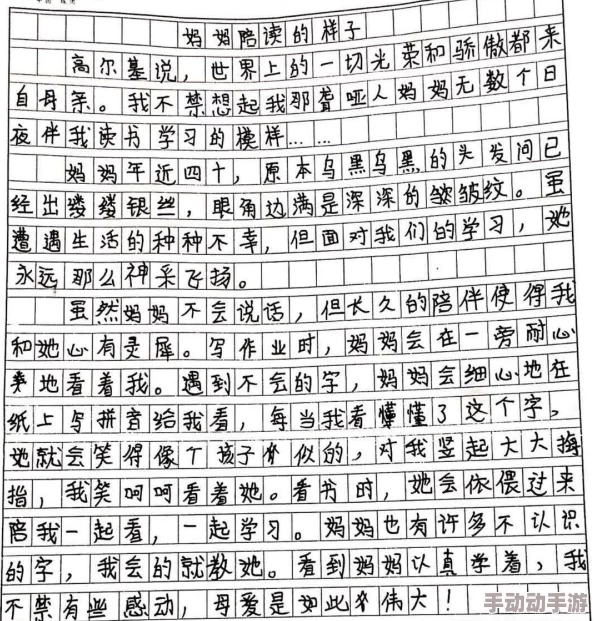 妈妈陪读的样子
高尔基说，世界上的一切光荣和骄傲都来
自母亲。我不禁想起我那聋哑人妈妈无数个日
夜伴我读书学习的模样……
妈妈年近四十，原本乌黑乌黑的头发间已
经出缕缕银丝，眼角边满是深深的皱皱纹。虽
遭遇生活的种种不幸，但面对我们的学习，她
永远那么神采飞扬。
虽然妈妈不会说话，但长久的陪伴使得我
和她心有灵犀。写作业时，妈妈会在一旁耐心
地看着我。遇到不会的字，妈妈会细心地在
纸上写拼音给我看，每当我看懂懂了这个字，
她就会笑得像个孩子似的，对我竖起大大拇
指，我笑呵呵看着她。看书时，她会依偎过来
陪我一起看，一起学习。妈妈也有许多不认识
的字，我会的就教她。看到妈妈认真学着，我
不禁有些感动，母爱是如此伟大！
手动动手游